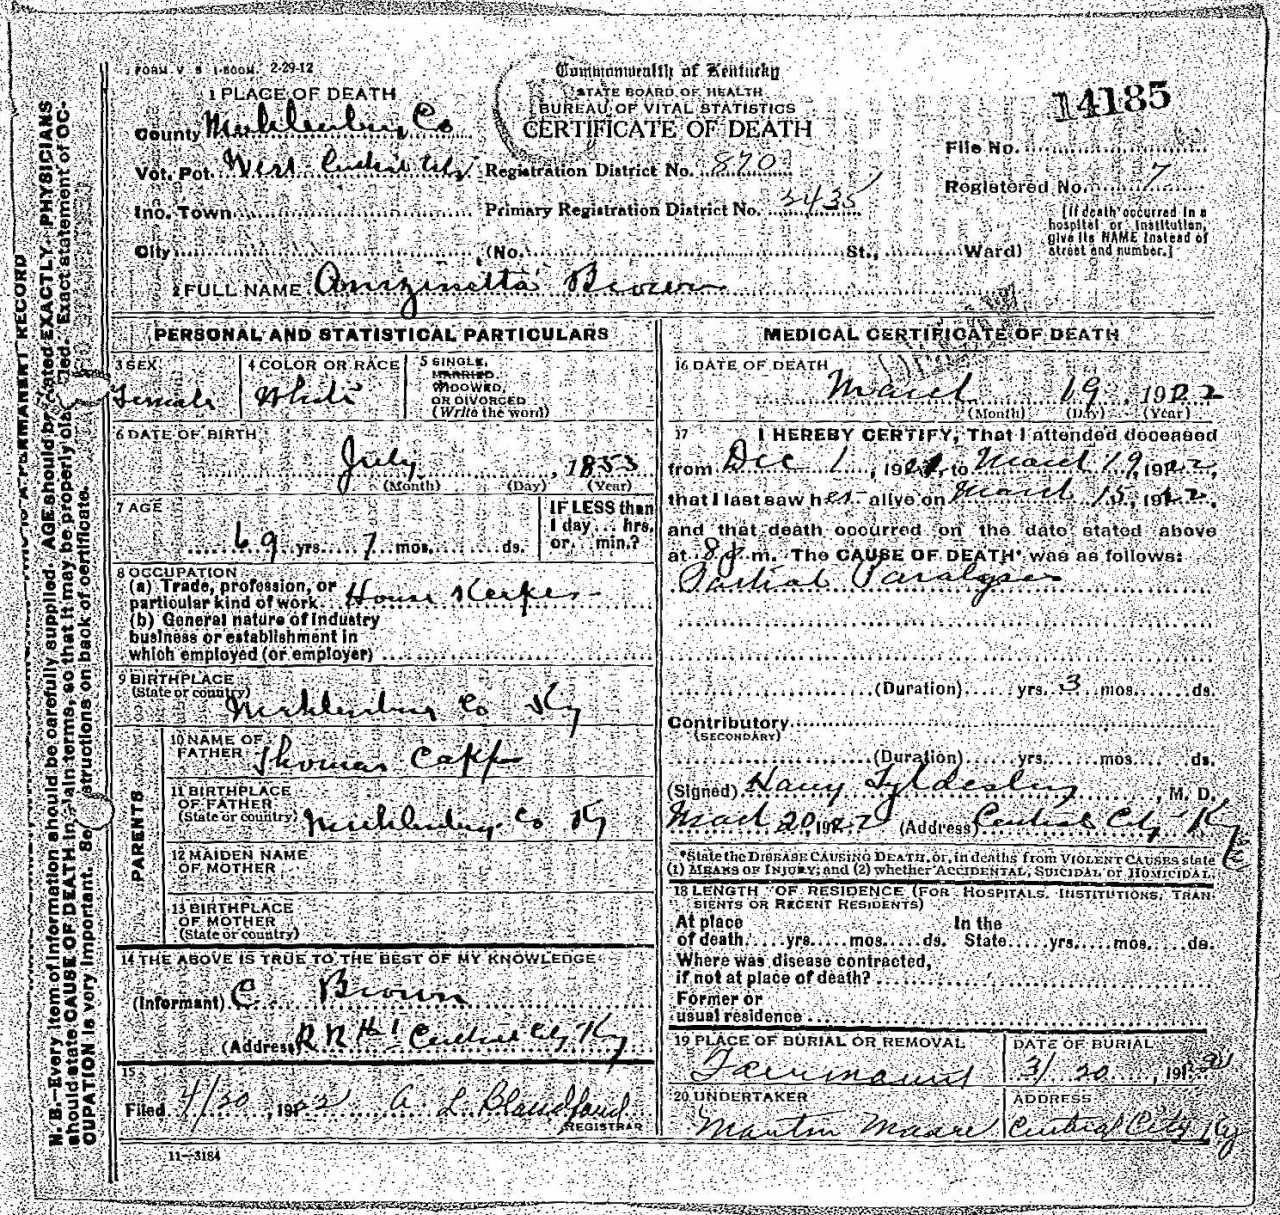 FORM V S 1-500M. 2-29-12
Commonwealth of Kentucky
STATE BOARD OF HEALTH
BUREAU OF VITAL STATISTICS
CERTIFICATE OF DEATH
14185
1 PLACE OF DEATH
County Muhlenburg Co
Vot. Pct. West Central City
Registration District No. 870
File No.
Inc. Town
Primary Registration District No. 2435
Registered No. 7
City (No. St., Ward)
[If death occurred in a
hospital or institution,
give its NAME instead of
street and number.]
2 FULL NAME Brown
PERSONAL AND STATISTICAL PARTICULARS
3 SEX
Female
4 COLOR OR RACE
White
5 SINGLE,
MARRIED
WIDOWED,
OR DIVORCED
(Write the word)
6 DATE OF BIRTH
July , 1853
(Month) (Day) (Year)
7 AGE
69 yrs. 7 mos. ds.
IF LESS than
1 day ... hrs.
or ... min.?
8 OCCUPATION
(a) Trade, profession, or
particular kind of work House Keeper
(b) General nature of industry
business or establishment in
which employed (or employer)
9 BIRTHPLACE
(State or country)
Muhlenburg Co Ky
PARENTS
10 NAME OF
FATHER Thomas
11 BIRTHPLACE
OF FATHER
(State or country) Muhlenburg Co Ky
12 MAIDEN NAME
OF MOTHER
13 BIRTHPLACE
OF MOTHER
(State or country)
14 THE ABOVE IS TRUE TO THE BEST OF MY KNOWLEDGE
(Informant) C Brown
(Address) R R #1 Central City Ky
15
Filed 4/20, 1922 A L Blandford
REGISTRAR
11-3184
MEDICAL CERTIFICATE OF DEATH
16 DATE OF DEATH
March 19 1922
(Month) (Day) (Year)
17 I HEREBY CERTIFY, That I attended deceased
from Dec 1, 1921, to March 19, 1922,
that I last saw her alive on March 15, 1922,
and that death occurred on the date stated above
at 8 p.m. The CAUSE OF DEATH* was as follows:
Partial Paralysis
(Duration) yrs. 3 mos. ds.
Contributory
(SECONDARY)
(Duration) yrs. mos. ds.
(Signed) Harry Tyldesley, M. D.
March 20 1922 (Address) Central City Ky
*State the DISEASE CAUSING DEATH, or, in deaths from VIOLENT CAUSES state
(1) MEANS OF INJURY; and (2) whether ACCIDENTAL, SUICIDAL or HOMICIDAL.
18 LENGTH OF RESIDENCE (FOR HOSPITALS, INSTITUTIONS, TRAN-
SIENTS OR RECENT RESIDENTS)
At place
of death yrs. mos. ds.
In the
State yrs. mos. ds.
Where was disease contracted,
if not at place of death?
Former or
usual residence
19 PLACE OF BURIAL OR REMOVAL
Fairmount
DATE OF BURIAL
3/20, 1922
20 UNDERTAKER
Martin Moore
ADDRESS
Central City Ky
N. B.—Every item of information should be carefully supplied. AGE should be stated EXACTLY. PHYSICIANS
should state CAUSE OF DEATH in plain terms, so that it may be properly classified. Exact statement of OC-
CUPATION is very important. See instructions on back of certificate.
A PERMANENT RECORD